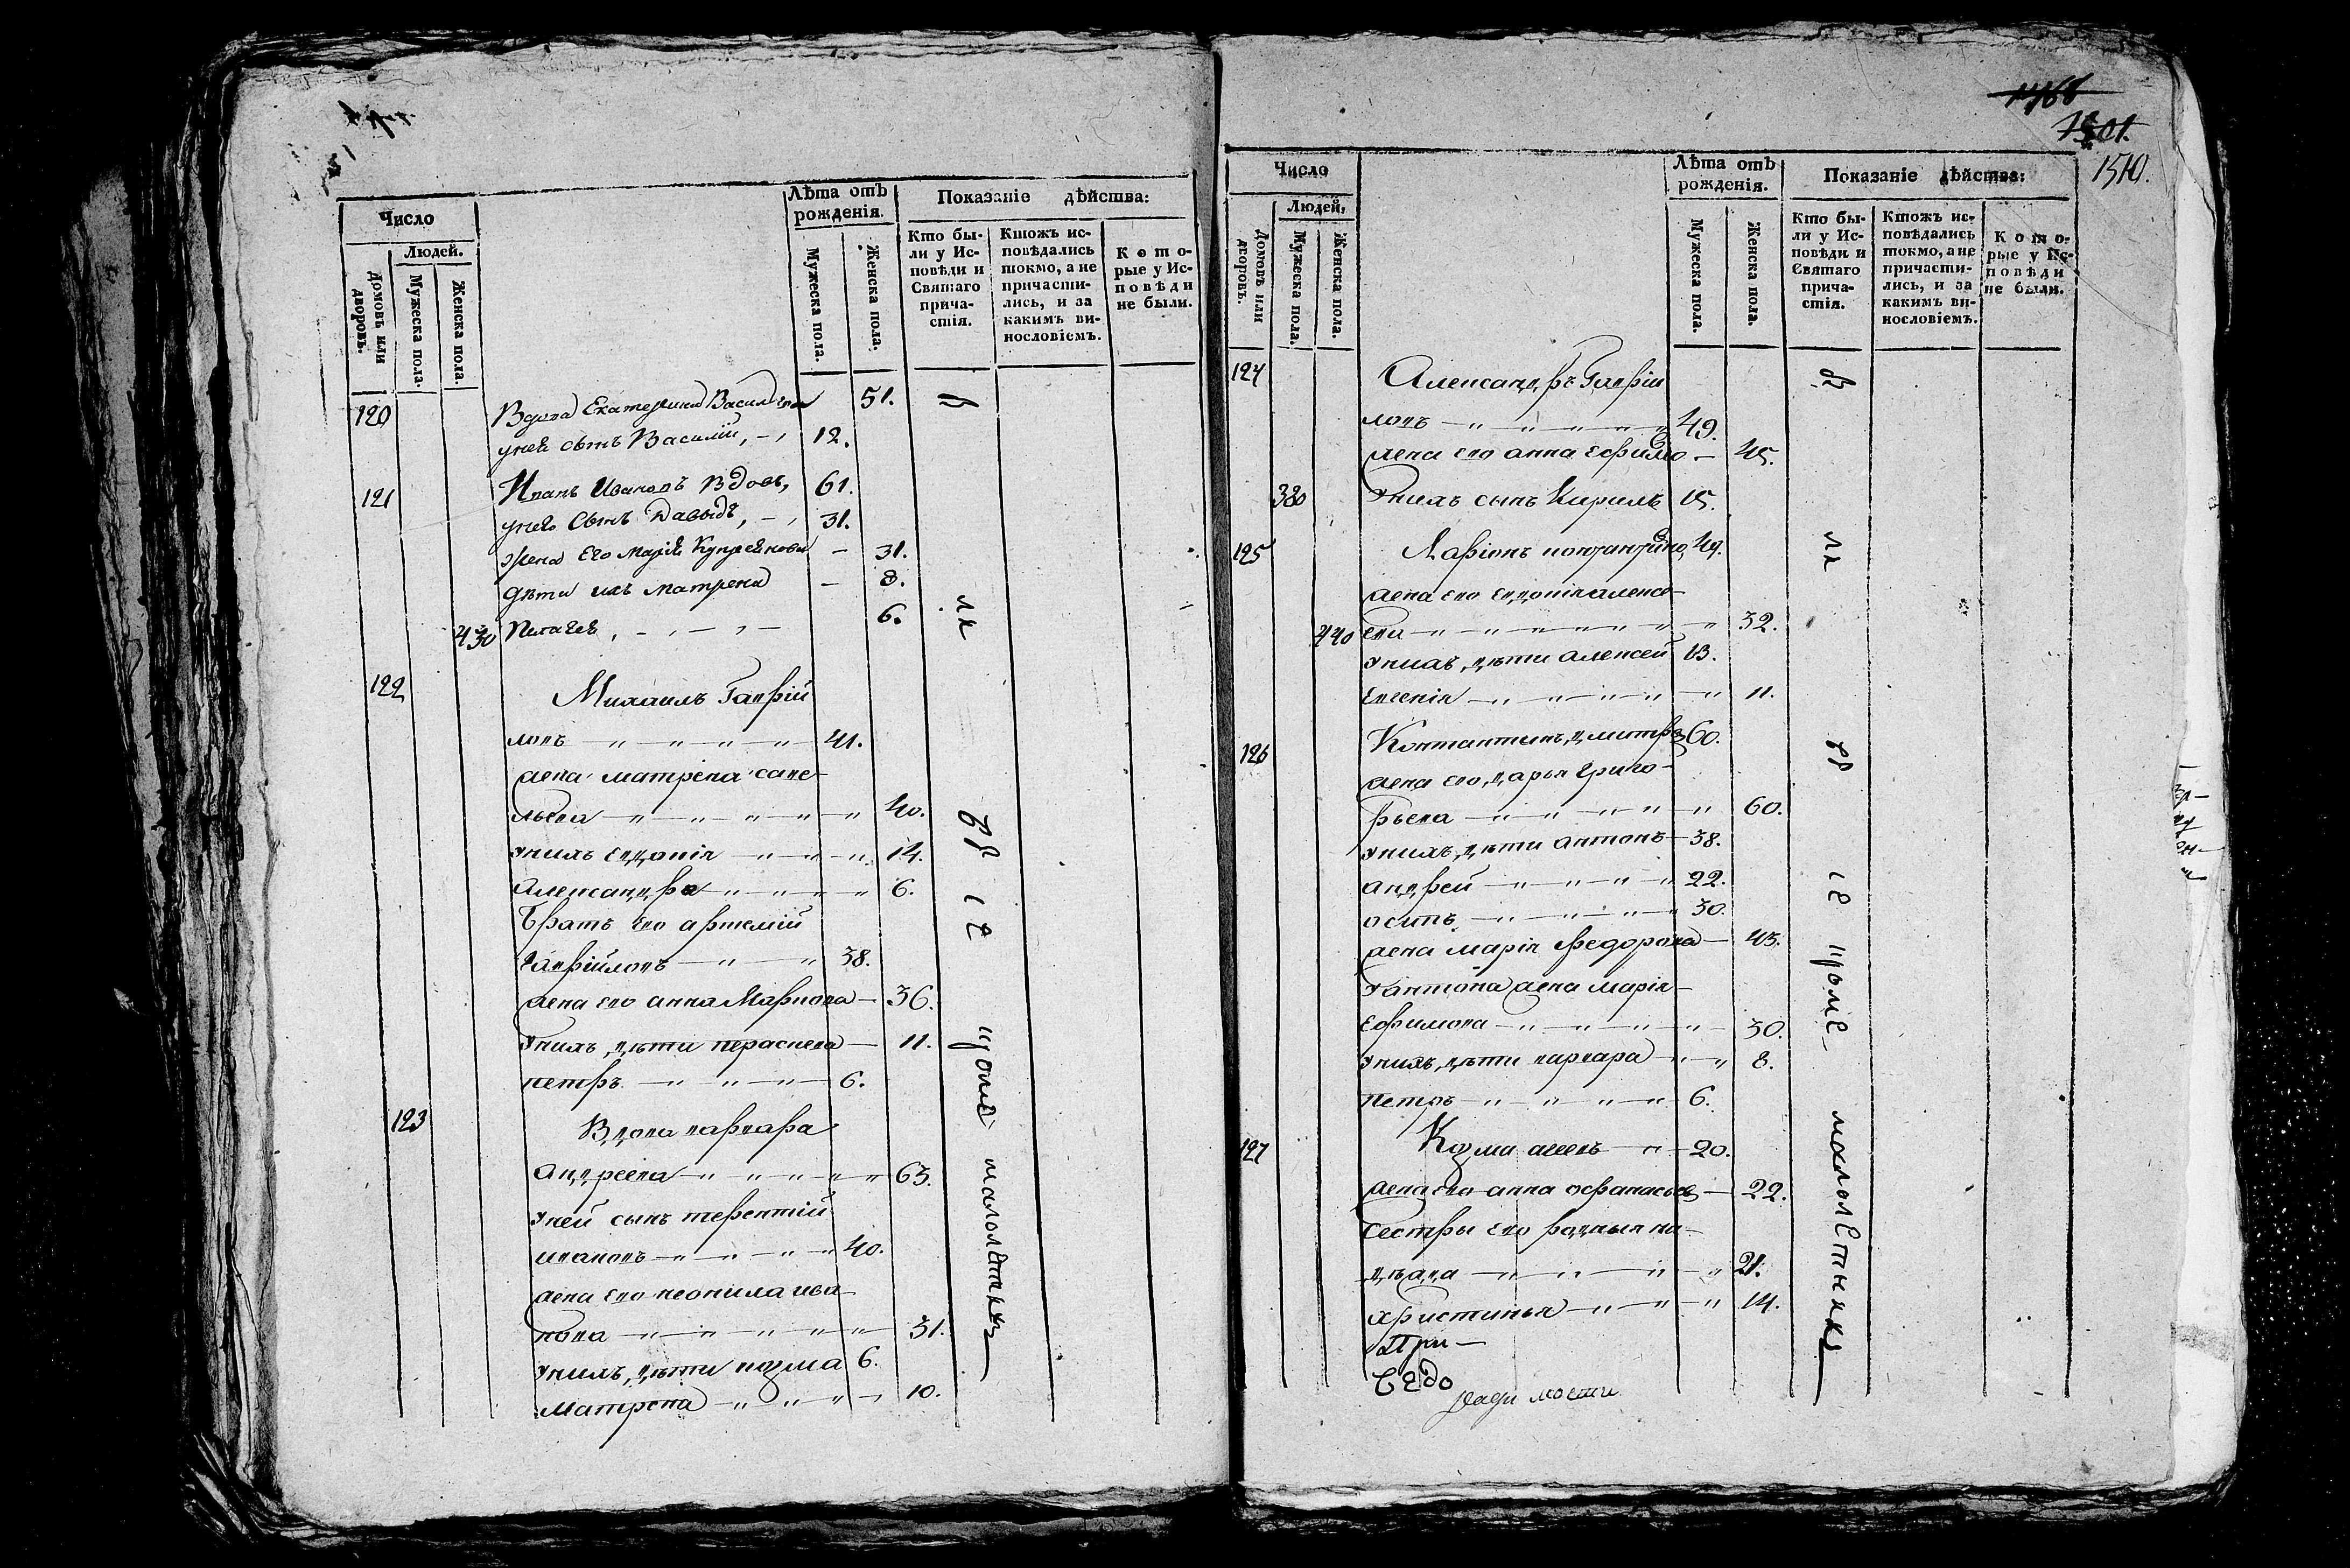 Число
Людей.
Домовъ или дворовъ.
Мужеска пола.
Женска пола.
Лѣта отъ рожденія.
Мужеска пола.
Женска пола.
Показаніе дѣйства:
Кто бы-
ли у Ис-
повѣди и
Святаго
прича-
стія.
Ктожъ ис-
повѣдались
токмо, а не
причасти-
лись, и за
какимъ ви-
нословіемъ.
Кото-
рые у Ис-
повѣди
не были.
120 Вдова Екатерина Василева 51.
унея сынъ Василіи, 12.
121 Иванъ Ивановъ Вдовъ, 61.
унего Сынъ Давыдъ, 31.
жена Его Марія 31.
дѣти ихъ матрена 8.
430 Пелагея, 6.
122 Михаилъ Гаврій
ловъ 41.
жена матрена саве-
льева 40.
унихъ евдокія 14.
Александра 6.
братъ его артемій
гаврійловъ 38.
жена его анна Маркова 36.
Унихъ дѣти параскева 11.
петръ 6.
123 Вдова варвара
андреева 63.
уней сынъ терентій
ивановъ 40.
жена его неонила ива
нова 31.
унихъ дѣти козма 6.
матрена 10.
вс ли вс я кроме малолетних
1510.
Число
Людей,
Домовъ или дворовъ.
Мужеска пола.
Женска пола.
Лѣта отъ рожденія.
Мужеска пола.
Женска пола.
Показаніе дѣйства:
Кто бы-
ли у Ис-
повѣди и
Святаго
прича-
стія.
Ктожъ ис-
повѣдались
токмо, а не
причасти-
лись, и за
какимъ ви-
нословіемъ.
Кото-
рые у Ис-
повѣди
не были.
124 Александръ Гаврій
ловъ 49.
жена его анна ефимо 45.
380 Унихъ сынъ Кирилъ 15.
125 Ларіонъ 49.
жена его евдокія алексе-
440 ева 32.
унихъ дѣти алексей 13.
евгенія 11.
126 Константинъ дмитре 60.
жена его дарья григо-
рьева 60.
унихъ дѣти антонъ 38.
андрей 22.
осипъ 30.
жена марія федорова 43.
Уантона жена марія
ефимова 30.
унихъ дѣти варвара 8.
петръ 6.
127 Козма 20.
жена его анна офанасьев 22.
сестры его родныя на-
дежда 21.
христинья 14.
кроме малолетних